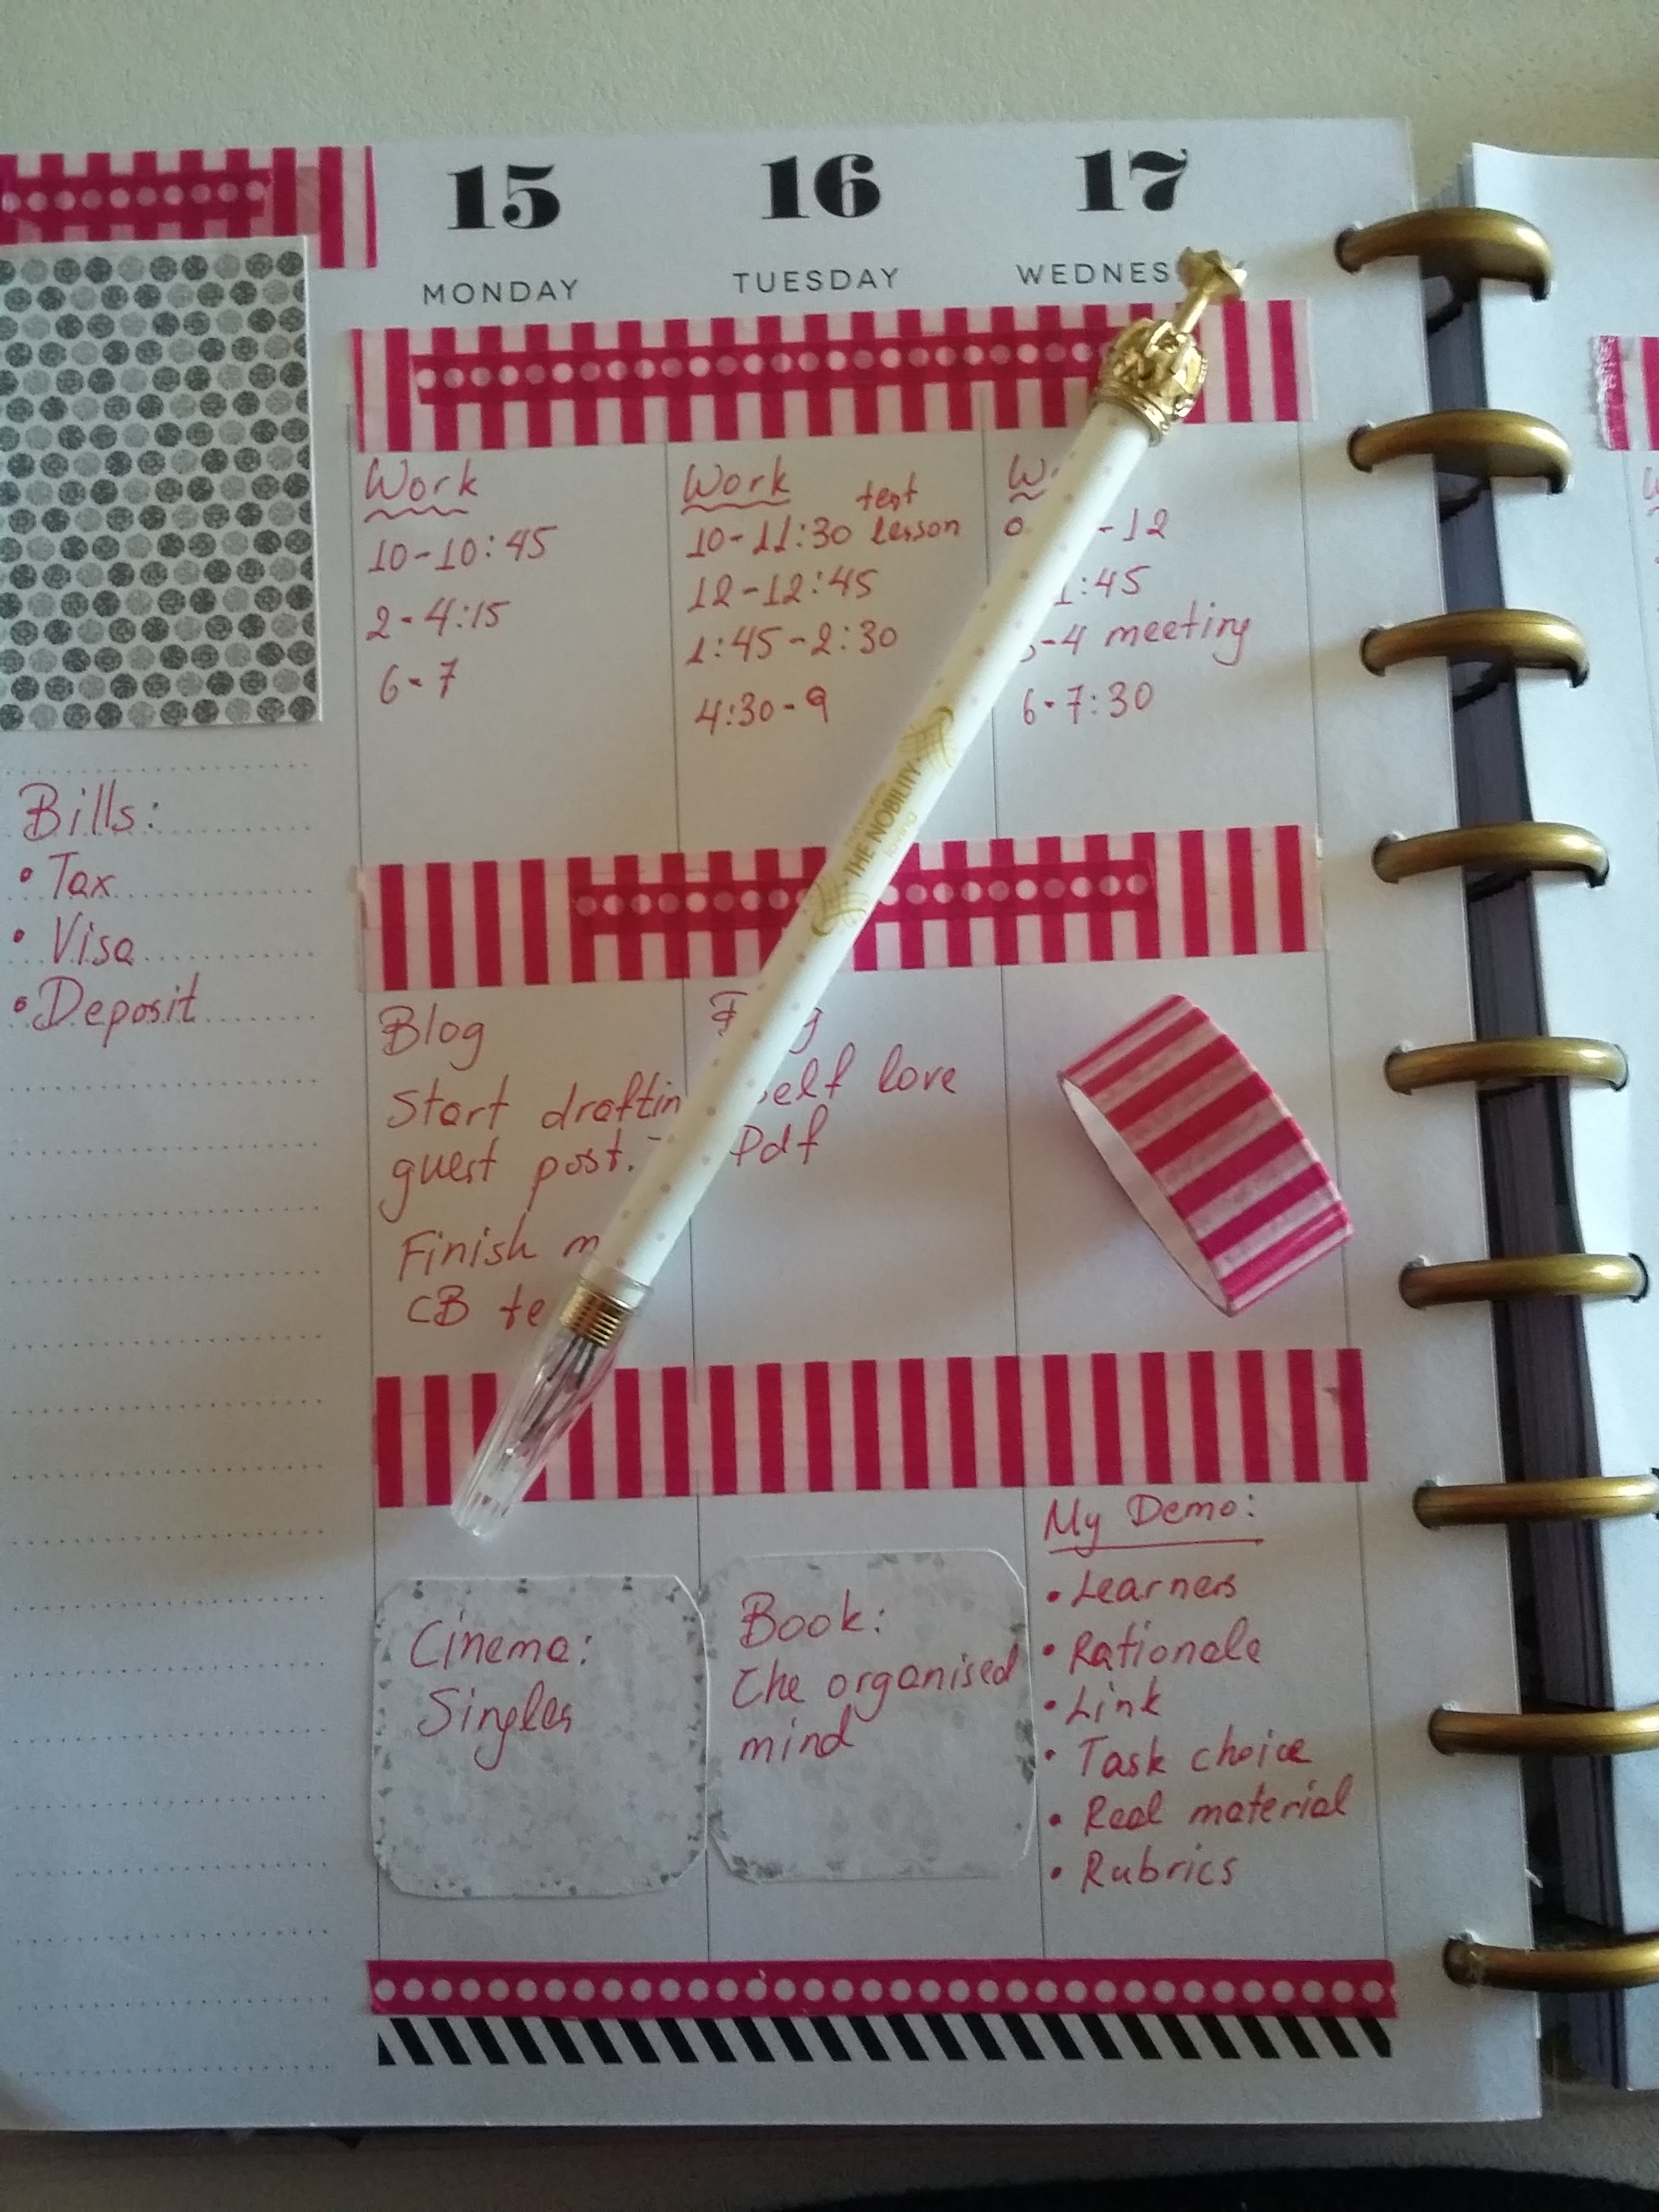 15
MONDAY
16
TUESDAY
17
Work
10-10:45
2-4:15
6-7
Work
test
10-11:30 lesson
12-12:45
1:45-2:30
4:30-9
-12
:45
-4 meeting
6-7:30
THE NOBILITY
Bills:
• Tax
• Visa
• Deposit
Blog
Start
guest post.
Finish
CB
love
Pdf
Cinema:
Singles
Book:
The organised
mind
My Demo:
• Learners
• Rationale
• Link
• Task choice
• Real material
• Rubrics